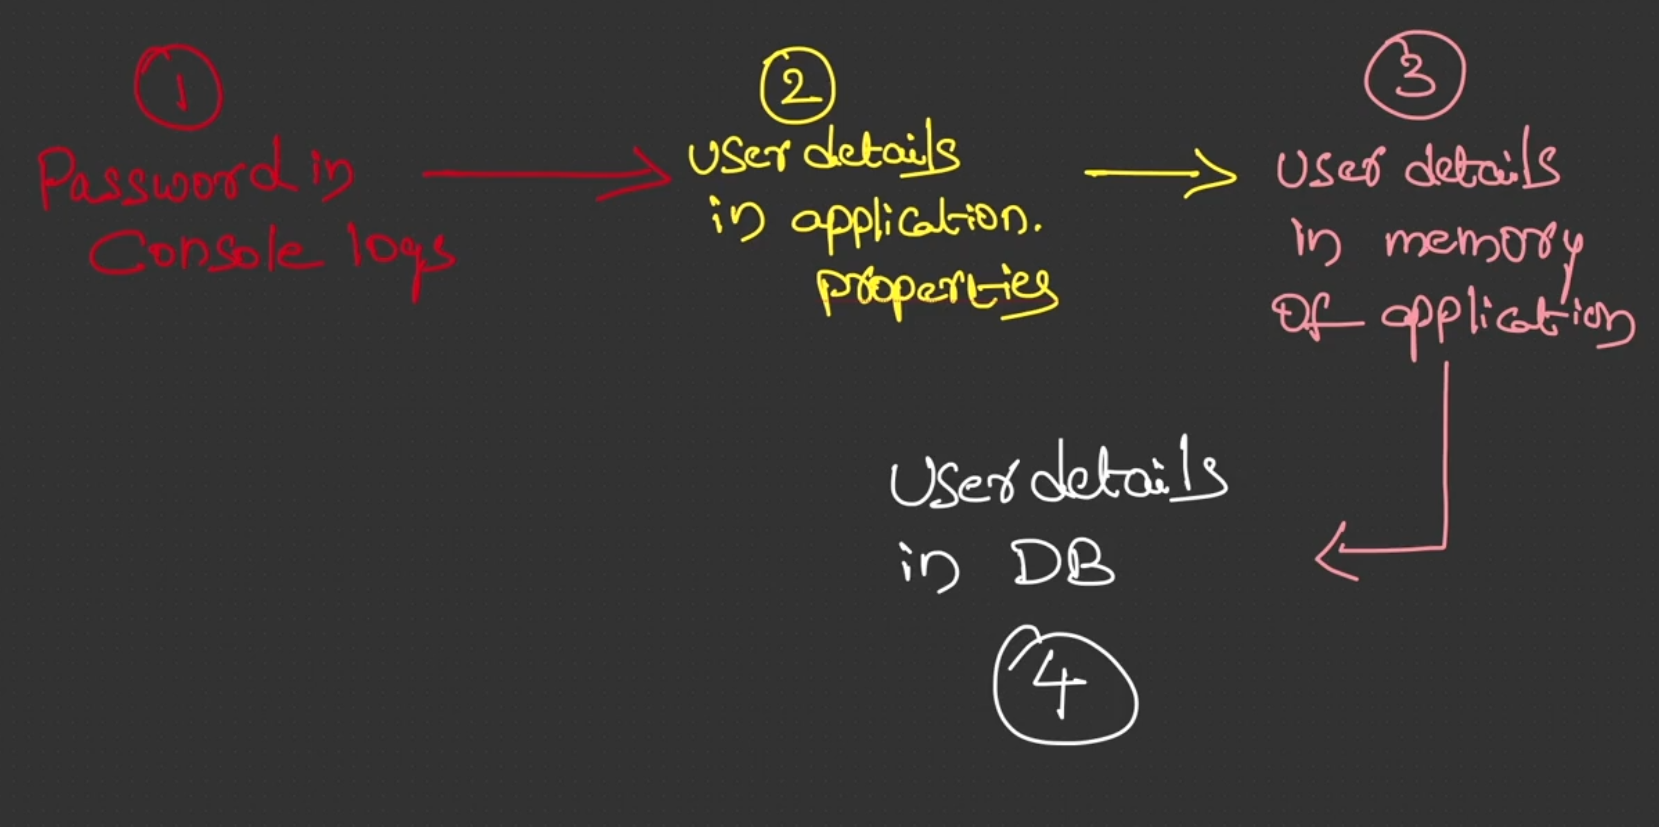 1
Password in
Console logs
2
User details
in application.
properties
3
User details
in memory
Of application
User details
in DB
4